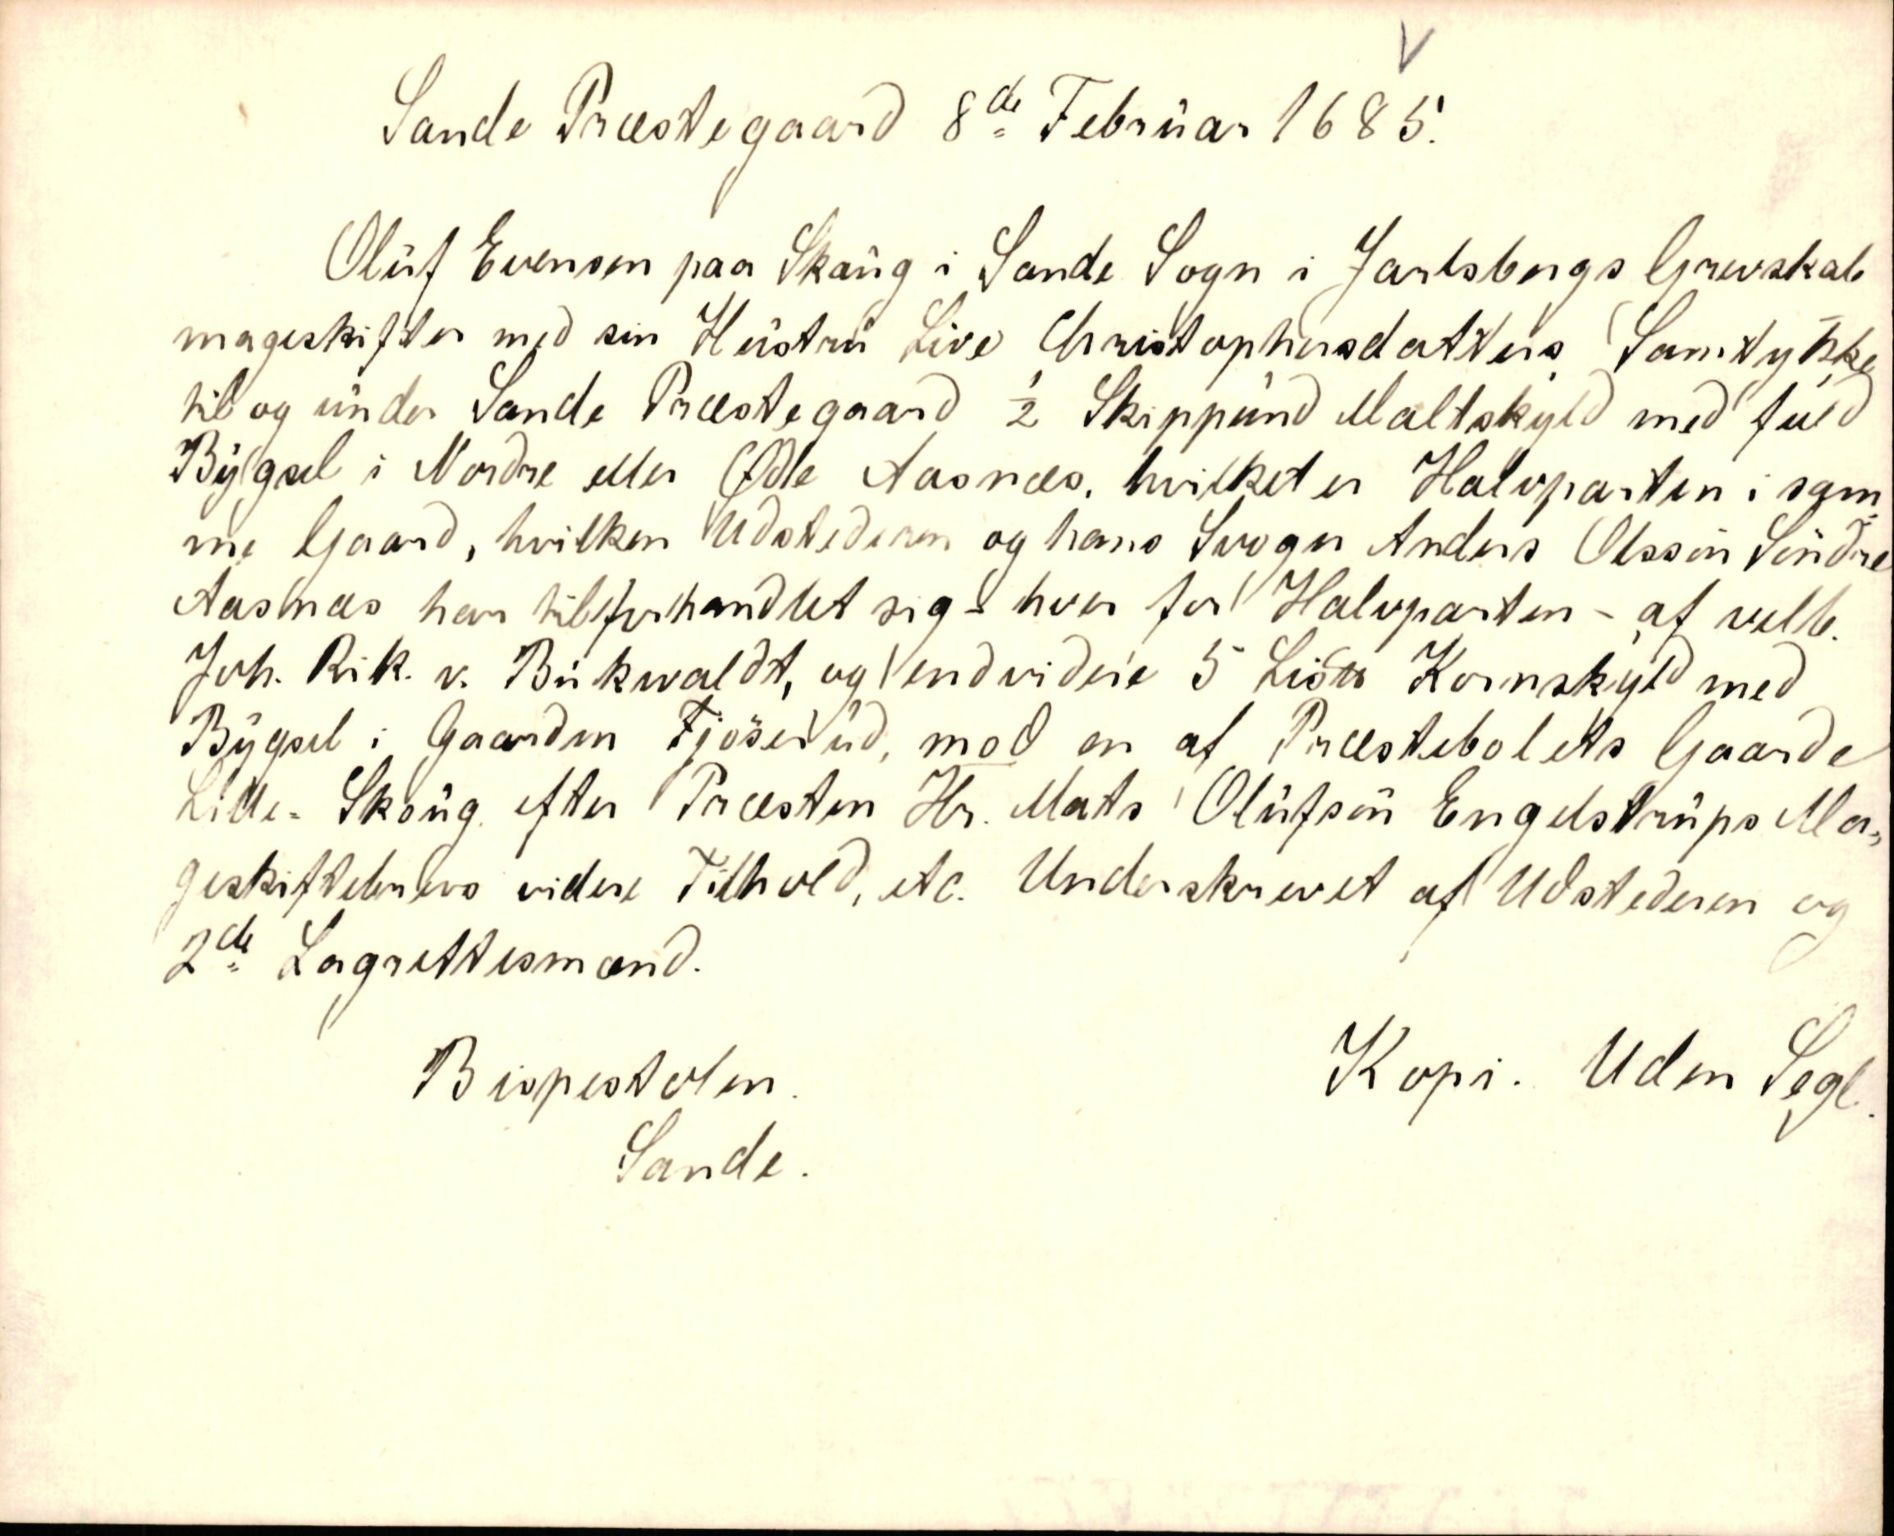 Sande Præstegaard 8de Februar 1685.
Oluf Evensen paa Skaug i Sande Sogn i Jarlsbergs Grevskab
mageskifter med sin Hustru Live Christophersdatters Samtykke
til og under Sande Præstegaard ½ Skippund Maltskyld med fuld
Bygsel i Nordre eller Øde Aasnæs, hvilket er Halvparten i sam-
me Gaard, hvilken Udstederen og hans Svoger Anders Olssøn Søndre
Aasnæs har tilforhandlet sig - hver for Halvparten - af velb.
Joh. Rik. v. Bukwaldt, og endvidere 5 Lis℔ Kornskyld med
Bygsel i Gaarden Fjøserud, mod en af Præstebolets Gaarde
Lille-Skoug efter Præsten Hr. Mats Olufsøn Engelstrups Ma-
geskiftebrevs videre Tilhold, etc. Underskrevet af Udstederen og
2de Lagrettesmænd.
Bispestolen. Kopi. Uden Segl.
Sande.